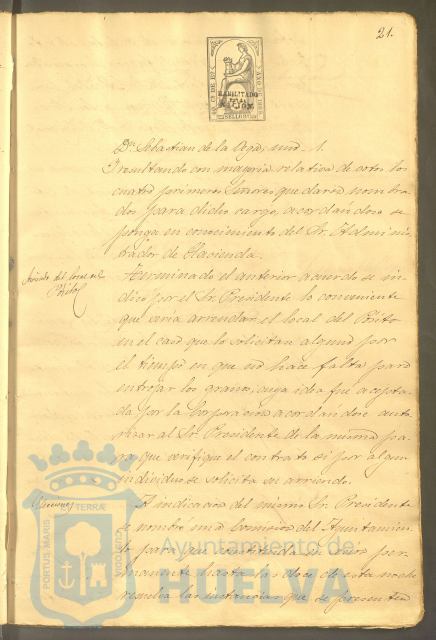 21.
HABILITADO
POR LA
NACION
SELLO
Dn. Sebastian de la Orga, und. 1.
Resultando con mayoria relativa de votos los
cuatro primeros Señores que daron nombra-
dos para dicho cargo, acordandose se
ponga en conocimiento del Sr. Adminis-
trador de Hacienda.
Arriendo del local del
Pósito
Terminado el anterior acuerdo se in-
dicó por el Sr. Presidente lo conveniente
que seria arrendar el local del Pósito
en el caso que lo solicitan alguno por
el tiempo en que no hace falta para
entrojar los granos, cuya idea fue acepta-
da por la Corporacion acordandose auto-
rizar al Sr. Presidente de la misma pa-
ra que verifique el contrato si por algun
individuo se solicita su arriendo.
Quintas
A indicacion del mismo Sr. Presidente
se nombre una Comision del Ayuntamien-
to para que constituida en sesion per-
manente hasta las doce de esta noche
resuelva las instancias que se presenten
PORTUS MARIS
ET TERRÆ
CUSTODIA
Ayuntamiento de
HUELVA